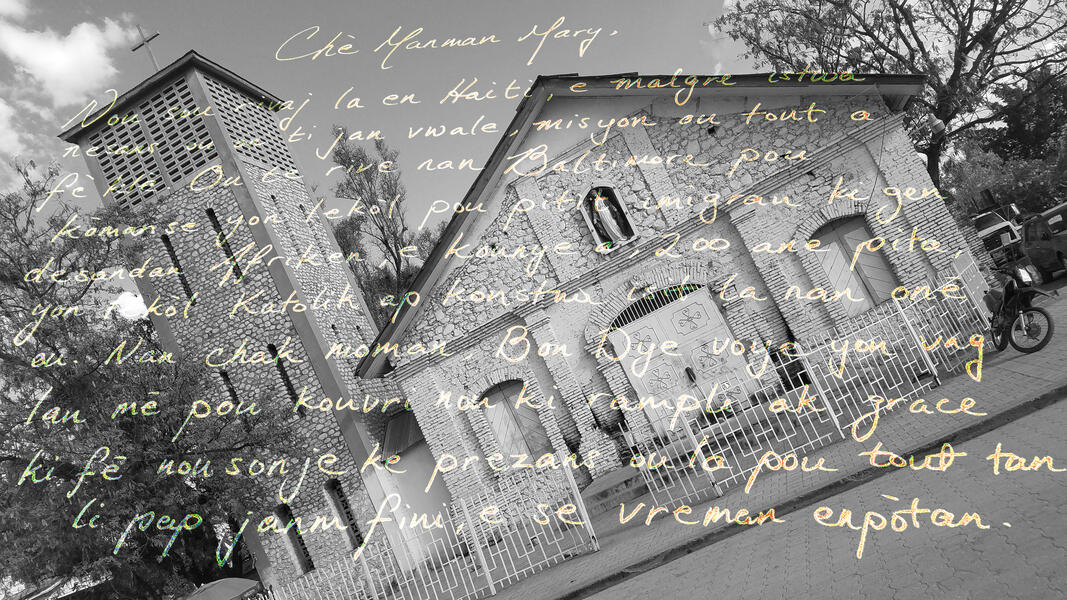 Chè Manman Mary,
Nou sou rivaj la en Haiti, e malgre istwa
ti jan vwale, misyon ou tout a
fè klè Ou te rive nan Baltimore pou
kòmanse yon lekòl pou pitit imigran ki gen
desandan Afriken e kounye a, 200 ane pita,
yon lekòl Katolik ap konstwi la nan onè
ou Nan chak moman, Bon Dye voye yon vag
lan mè pou kouvri nou ki rampli ak grace
ki fè nou sonje ke prezans ou la pou tout tan
li pap janm fini, e se vreman enpòtan.